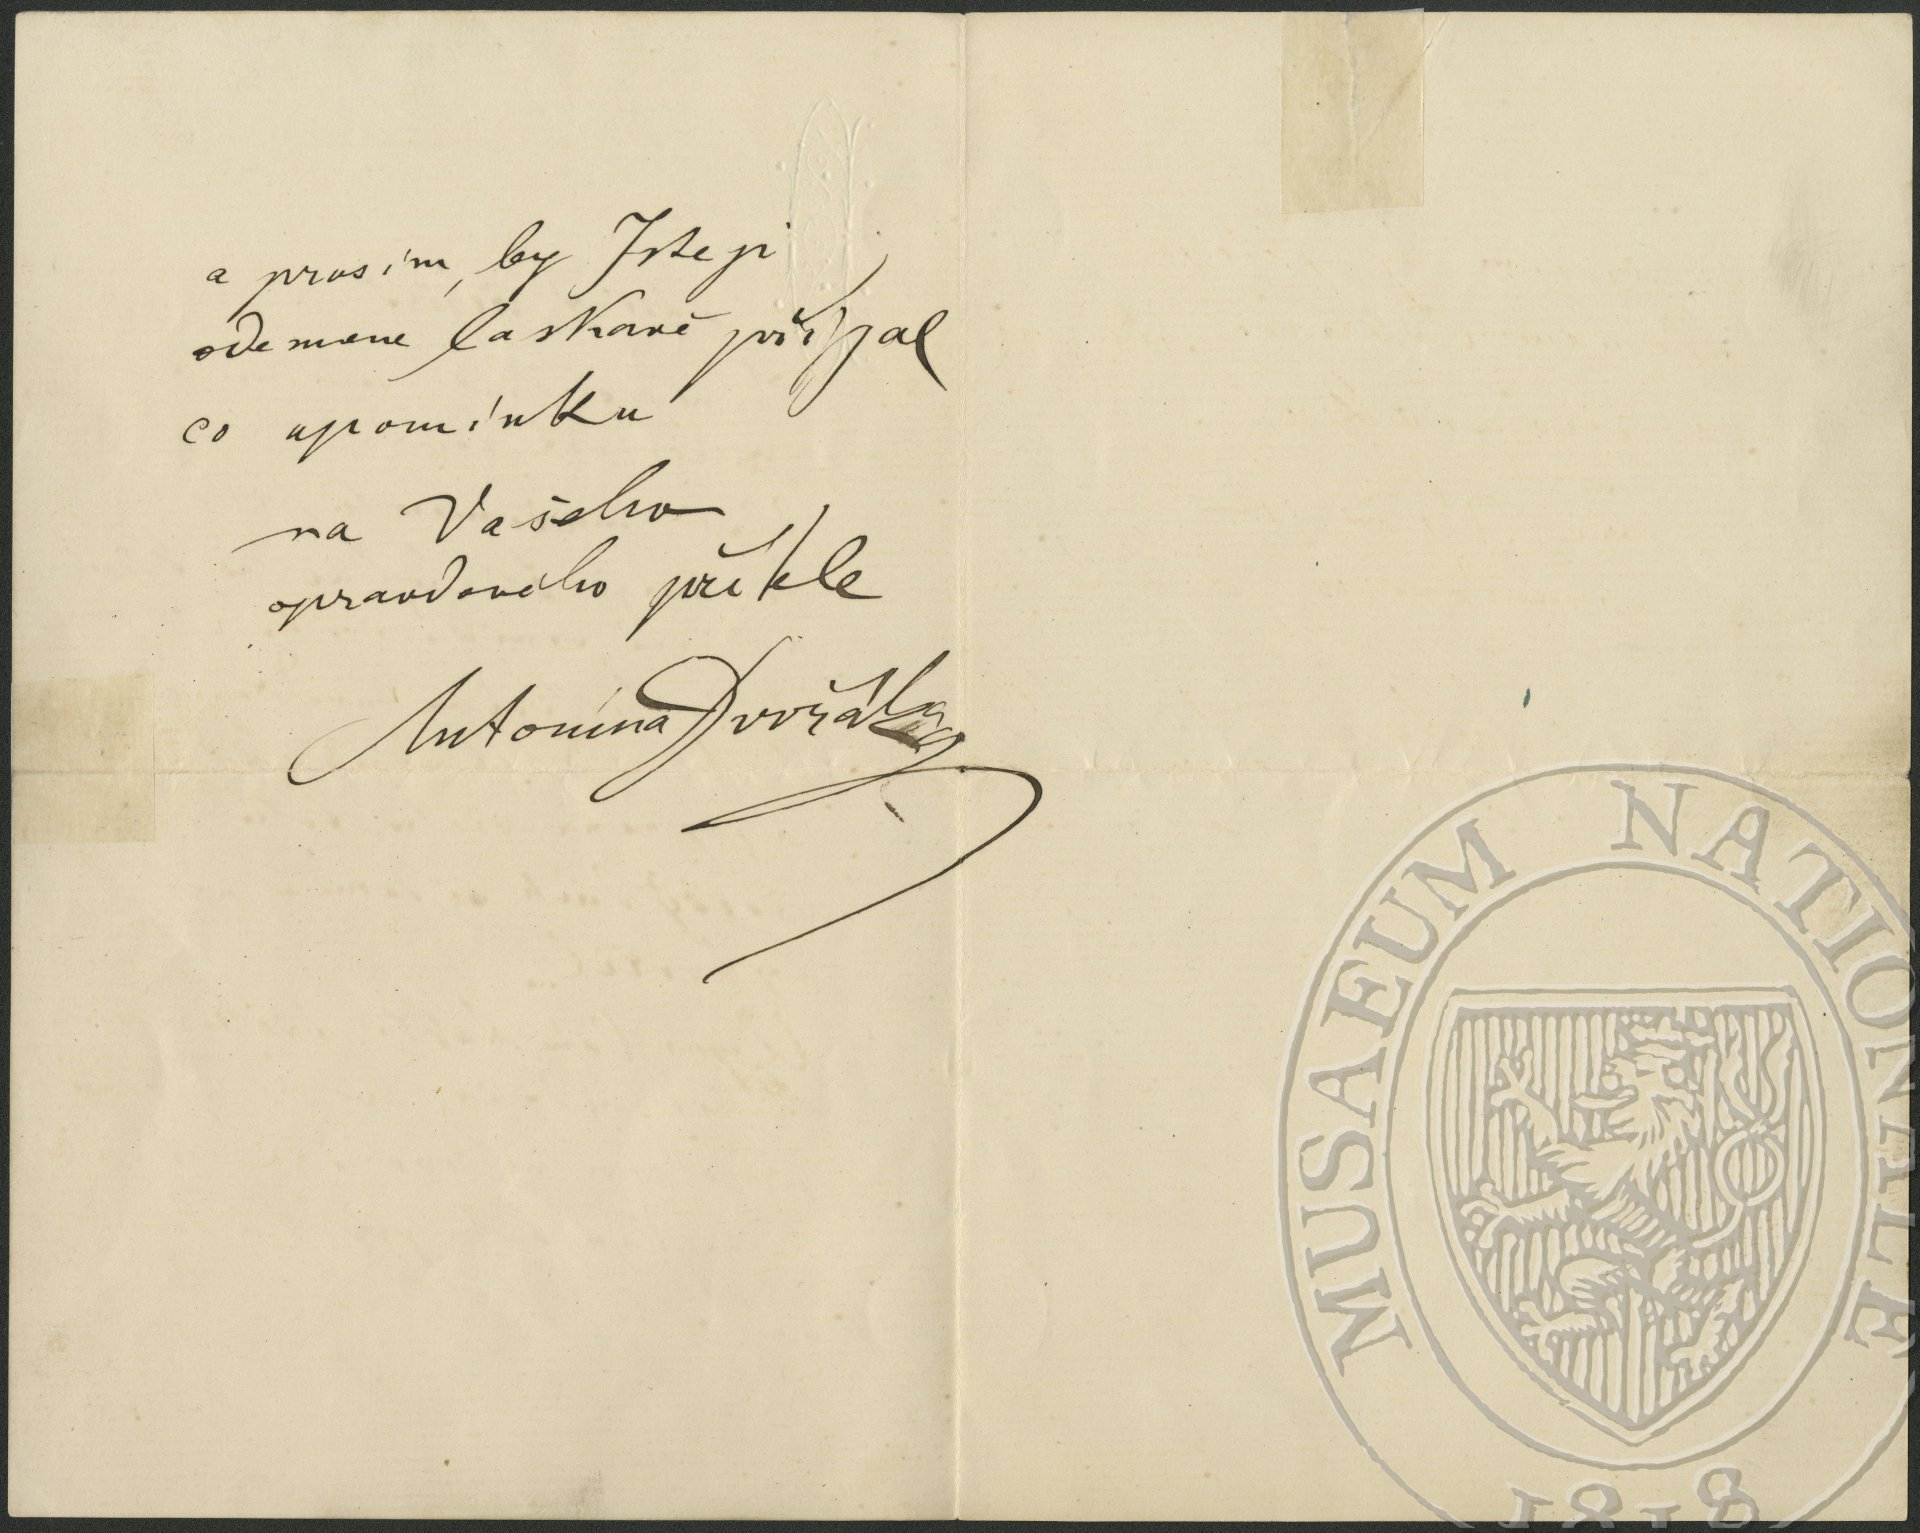 a prosím, by Jste ji
odemene laskavě přijjal
co upomínku
na Vašeho
opravdového přítele
Antonína Dvořáka
MUSAEUM NATIONALE
1818